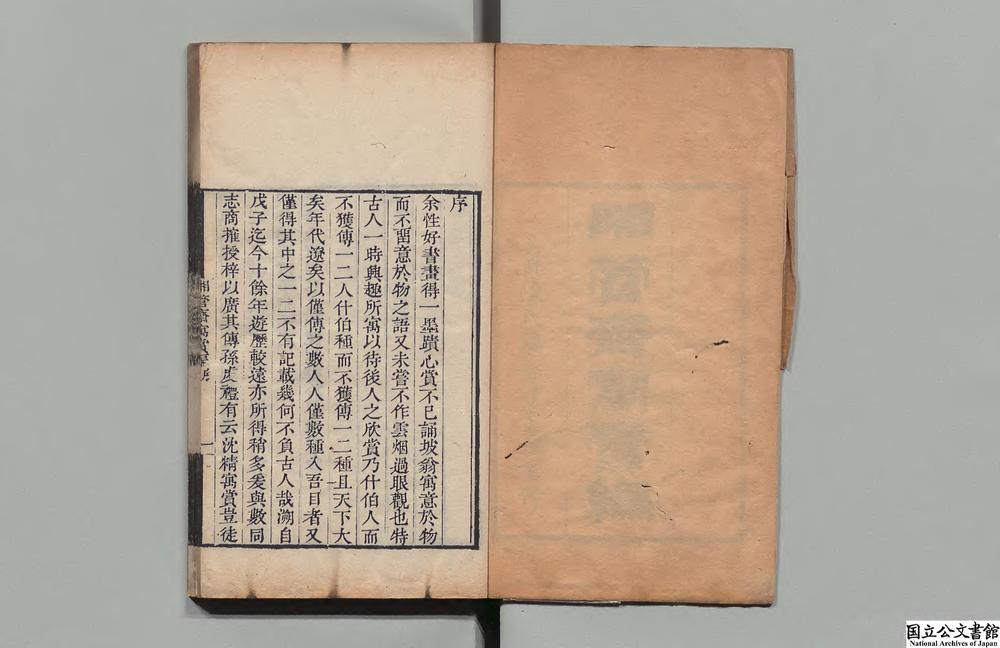 序
余性好書畫得一墨蹟心賞不已誦坡翁寓意於物
而不畱意於物之語又未嘗不作雲烟過眼觀也特
古人一時興趣所寓以待後人之欣賞乃什伯人而
不獲傳一二人什伯種而不獲傳一二種且天下大
矣年代遼矣以僅傳之數人人僅數種入吾目者又
僅得其中之一二不有記載幾何不負古人哉溯自
戊子迄今十餘年遊歷較遠亦所得稍多爰與數同
志商搉授梓以廣其傳孫虔禮有云沈精寓賞豈徒
齋寓賞
一
国立公文書館
National Archives of Japan